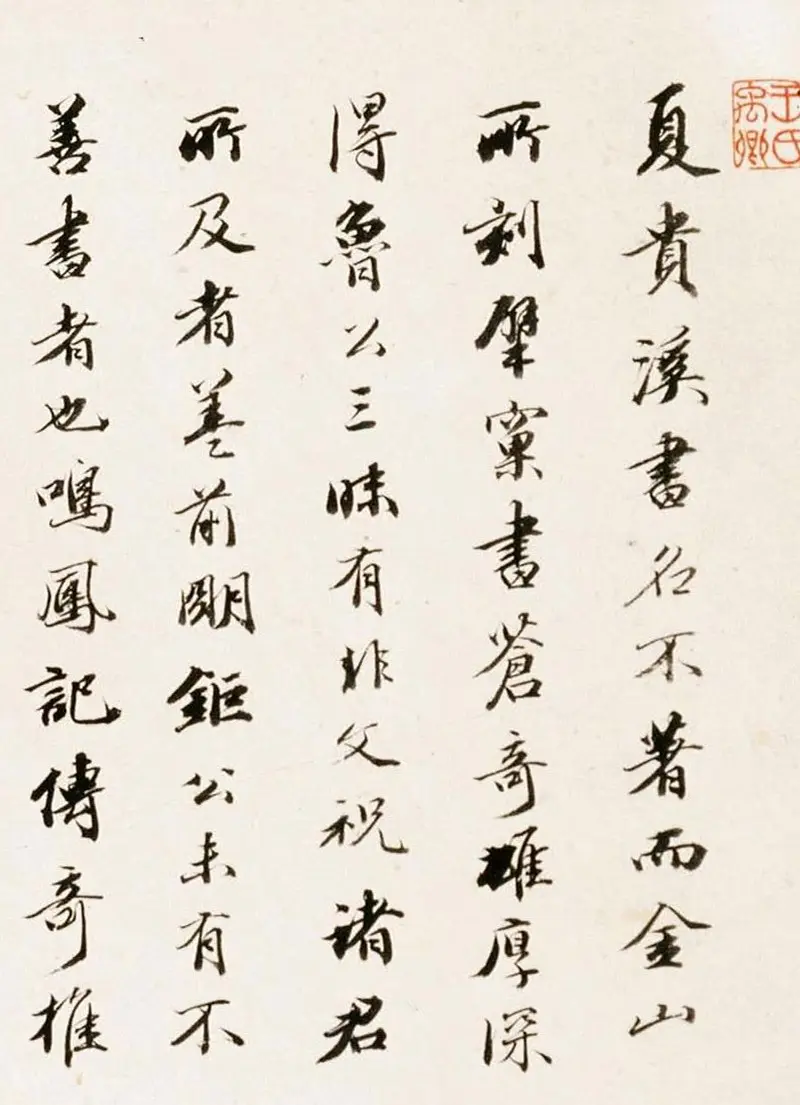 王氏禹卿
夏貴溪書名不著而金山
所刻擘窠書蒼奇雄厚深
得魯公三昧有非文祝諸君
所及者蓋前朙鉅公未有不
善書者也鳴鳳記傳奇推